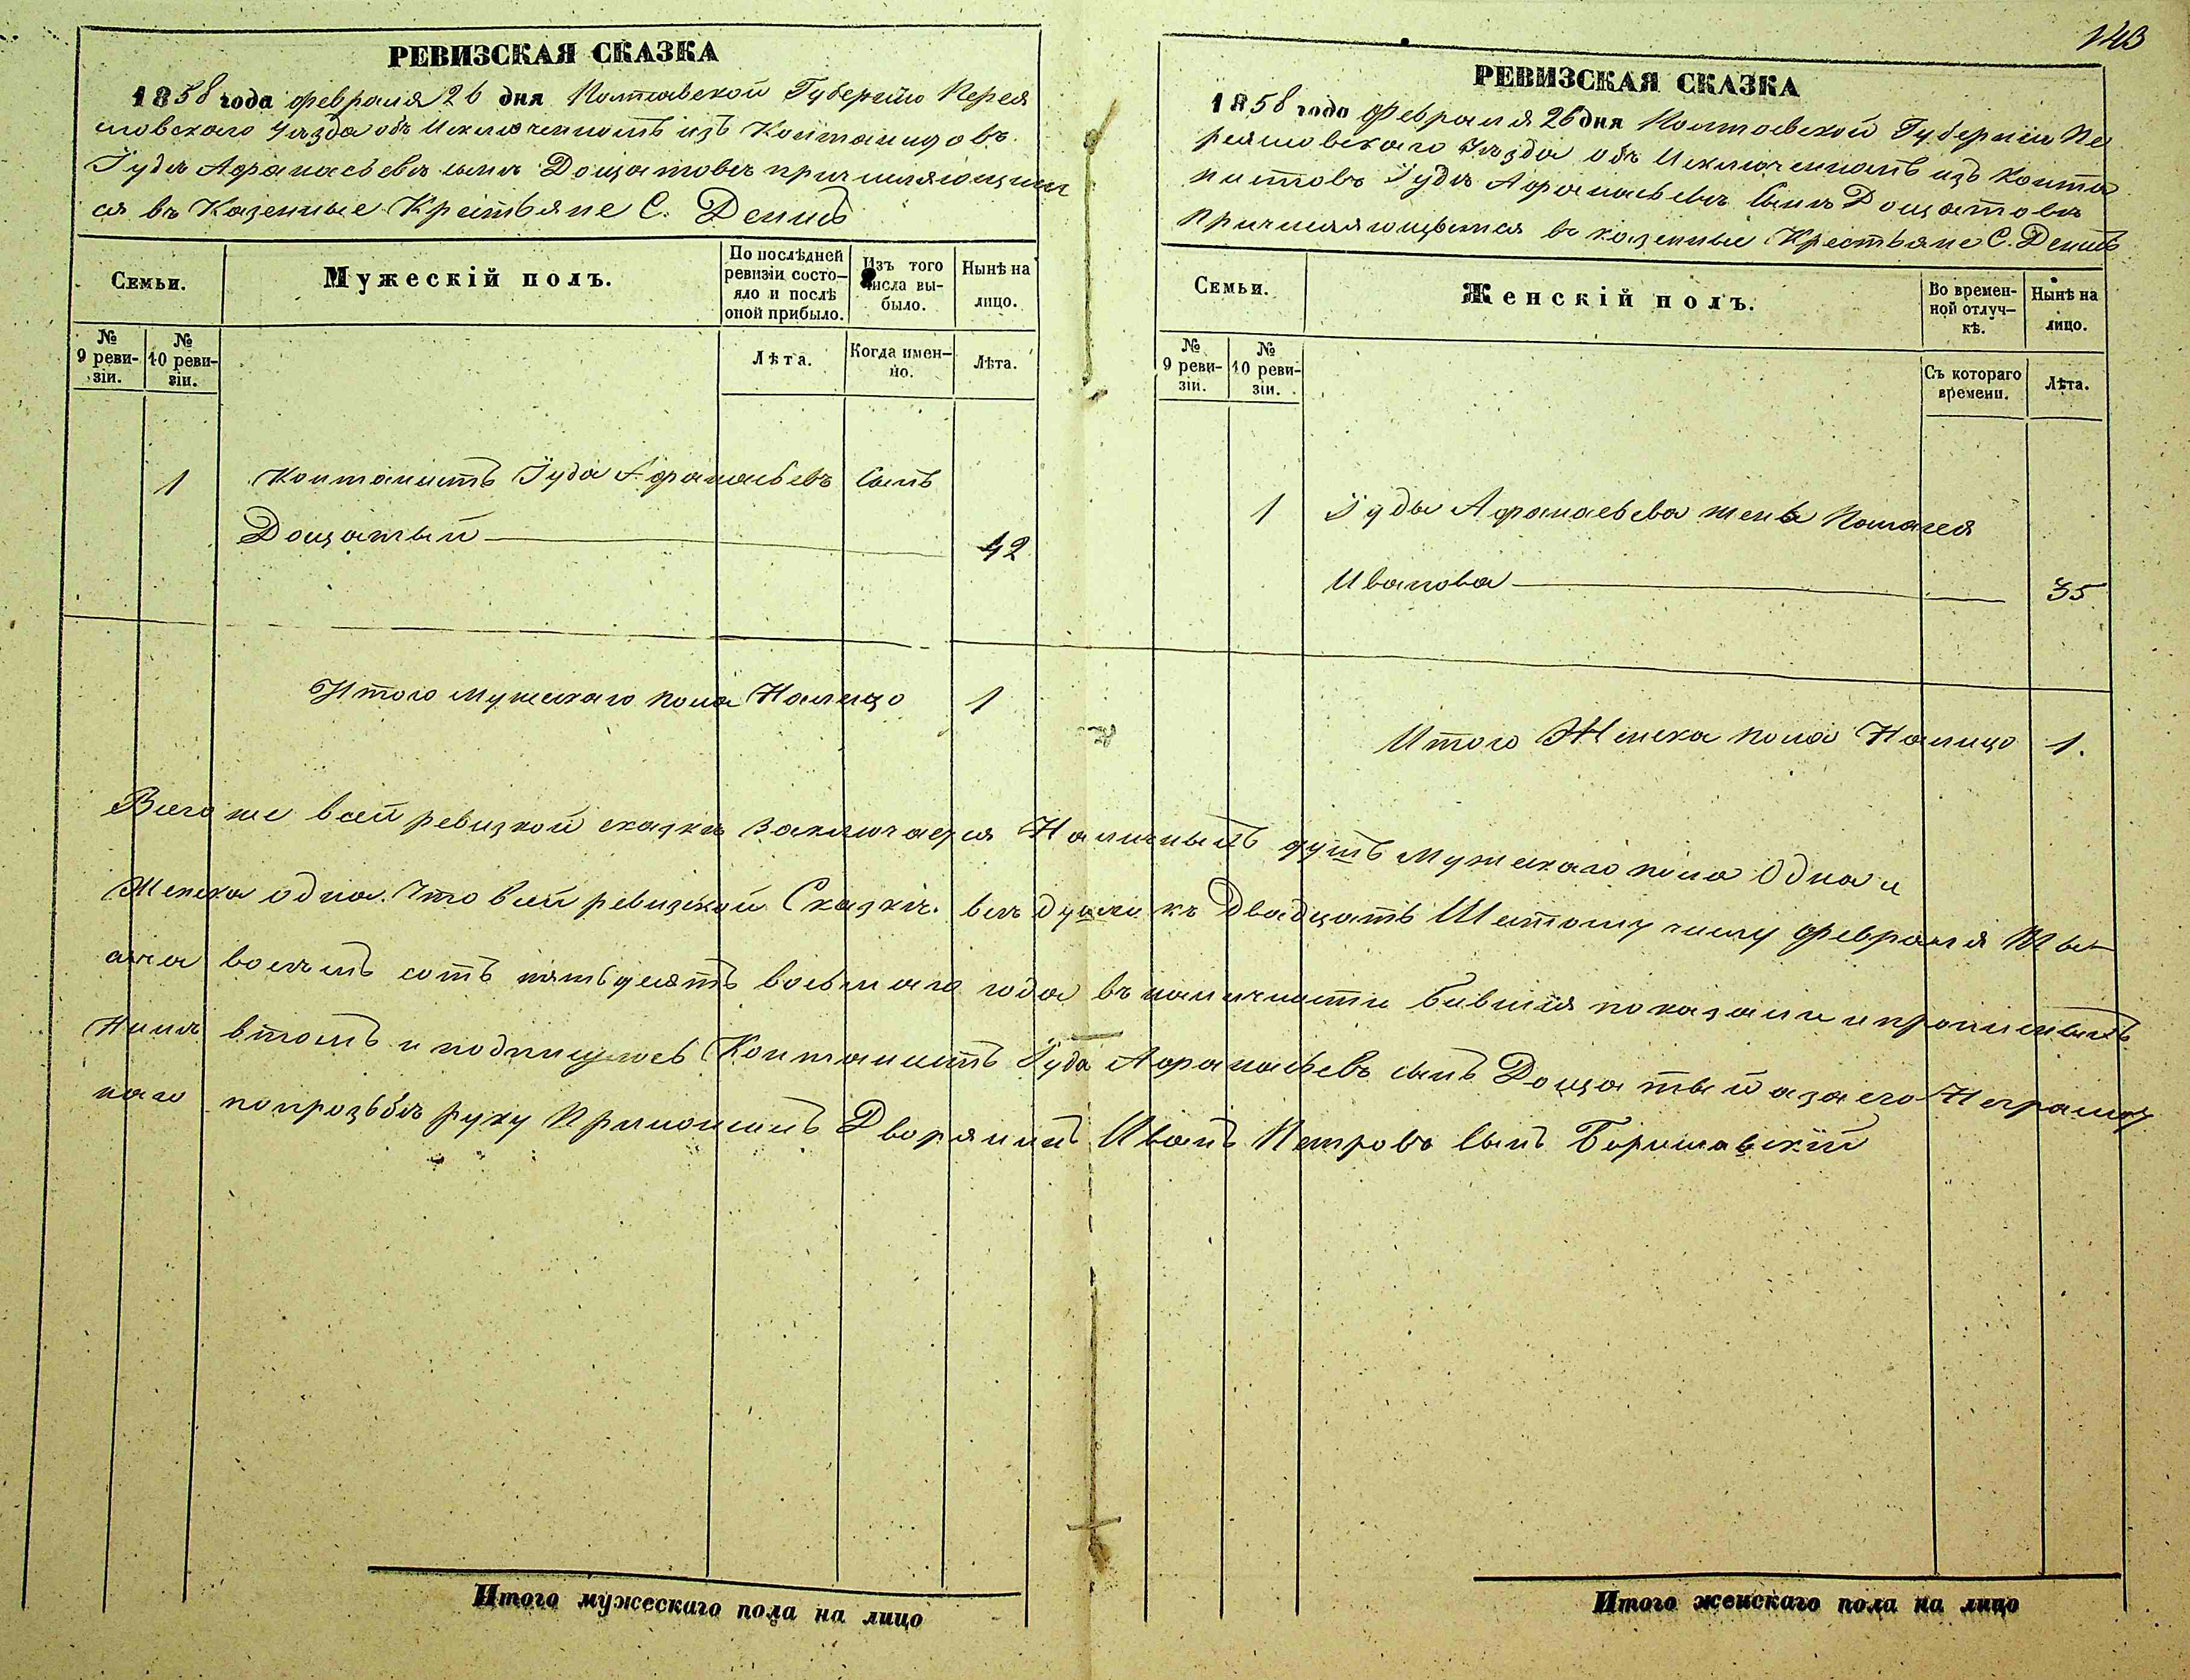 143
РЕВИЗСКАЯ СКАЗКА
1858 года февраля 26 дня Полтавской Губернiи Перея
словского Уѣзда объ Исключенномъ изъ Контонистовъ
Iудѣ Афанасьевѣ сынѣ Дощатовѣ причисляющим
ся въ Казенные Крестьяне С. Денисъ
Семьи.
Мужескiй полъ.
По послѣдней ревизiи состо-
яло и послѣ оной прибыло.
Изъ того числа вы-
было.
Нынѣ на лицо.
№ 9 реви-
зiи.
№ 10 реви-
зiи.
Лѣта.
Когда имен-
но.
Лѣта.
1 Контонистъ Iуда Афанасьевъ Сынъ
Дощатый 42
Итого мужескаго пола Налицо 1
РЕВИЗСКАЯ СКАЗКА
1858 года Февраля 26 дня Полтавской Губернiи Пе
реясловскаго Уѣзда объ Исключенномъ изъ Конто
нистовъ Iудѣ Афанасьевѣ Сынѣ Дощатовѣ
Причисляющемся въ казенные Крестьяне С. Денисъ
Семьи.
Женскiй полъ.
Во времен-
ной отлуч-
кѣ.
Нынѣ на лицо.
№ 9 реви-
зiи.
№ 10 реви-
зiи.
Съ котораго времени.
Лѣта.
1 Iуды Афанасьева жена Пелагея
Иванова 35
Итого Женска пола Налицо 1.
Всего же всей ревизкой сказкѣ заключается Наличныхъ душъ Мужескаго пола Одна и
Женска одна. Что всей ревизской Сказкѣ всѣ души къ Двадцать Шестому числу февраля Ты
сяча восемь сотъ пятьдесятъ восьмаго года въ наличности бывшiя показаны и прописныхъ
Нимъ втомъ и подписуюсь Контонистъ Iуда Афанасьевъ сынъ Дощатый азаего Неграмот
наго попрозьбѣ руку Приложилъ Дворянинъ Иванъ Петровъ Сынъ
Итого мужескаго пола на лицо
Итого женскаго пола на лицо